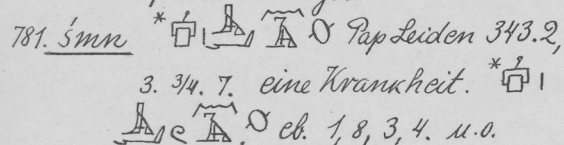 781. śmn * Pap Leiden 343.2,
3. 3/4. 7. eine Krankheit. *
eb. 1, 8, 3, 4. u. o.